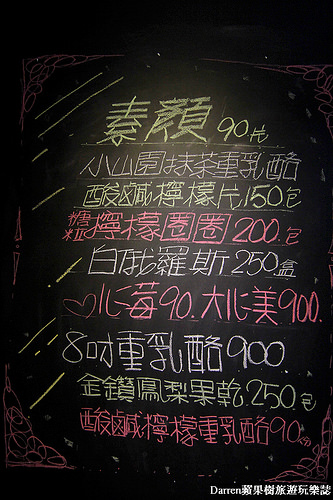 素顏90.片
小山園抹茶重乳酪
酸鹹檸檬片,150包
糖粒檸檬圈圈200.包
白俄羅斯250盒
♡心莓90.大心美900.
8吋重乳酪900.
金鑽鳳梨果乾.250.包
酸鹹檸檬重乳酪90.
Darren蘋果樹旅遊玩樂誌